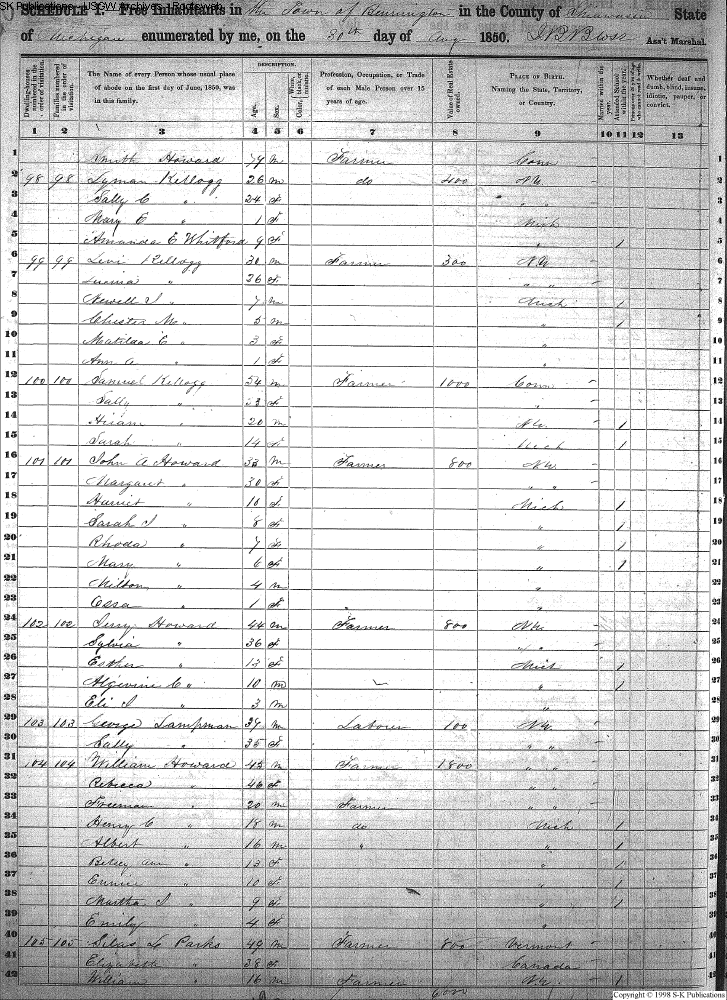 SK Publications - USGW Archives - Rootsweb
SCHEDULE I. Free Inhabitants in the Town of Bennington in the County of Shiawassee State
of Michigan enumerated by me, on the 30th day of Aug 1850. Ass't Marshal.
Dwelling-houses numbered in the order of visitation. Families numbered in the order of visitation. The Name of every Person whose usual place of abode on the first day of June, 1850, was in this family. DESCRIPTION. Age. Sex. Color, White, black, or mulatto. Profession, Occupation, or Trade of each Male Person over 15 years of age. Value of Real Estate owned. PLACE OF BIRTH. Naming the State, Territory, or Country. Married within the year. Attended School within the year. Whether deaf and dumb, blind, insane, idiotic, pauper, or convict.
1 2 3 4 5 6 7 8 9 10 11 12 13
1 Smith Howard 79 m Farmer Conn 1
2 98 98 Lyman Kellogg 26 m do 400 N.Y. 2
3 Sally C " 24 f " " 3
4 Mary E " 1 f Mich 4
5 Amanda E Whitford 9 f " 1 5
6 99 99 Levi Kellogg 30 m Farmer 300 N.Y. 6
7 " 26 f " " 7
8 Newell J " 7 m Mich 1 8
9 Chester M " 5 m " 1 9
10 Matilda E " 3 f " 10
11 Ann A " 1 f " 11
12 100 100 Samuel Kellogg 54 m Farmer 1000 Conn 12
13 Sally " 53 f " 13
14 Hiram " 20 m N.Y. 1 14
15 Sarah " 14 f Mich 1 15
16 101 101 John A Howard 33 m Farmer 800 N.Y. 16
17 Margaret " 30 f " " 17
18 Harriet " 10 f Mich 1 18
19 Sarah J " 8 f " 1 19
20 Rhoda " 7 f " 1 20
21 Mary " 6 f " 1 21
22 Milton " 4 m " 22
23 " 1 f " " 23
24 102 102 Howard 44 m Farmer 800 N.Y. 24
25 Sylvia " 36 f " " 25
26 Esther " 13 f Mich 1 26
27 Algevine C " 10 m " 1 27
28 Eli J " 3 m " 28
29 103 103 George Lampman 39 m Laborer 100 N.Y. 29
30 Sally " 35 f " " 30
31 104 104 William Howard 45 m Farmer 1800 " " 31
32 Rebecca " 46 f " " 32
33 Freeman " 20 m Farmer " " 33
34 Henry C " 18 m do Mich 1 34
35 Albert " 16 m " " 1 35
36 Betsey Ann " 13 f " 1 36
37 Eunice " 10 f " 1 37
38 Martha J " 9 f " 1 38
39 Emily " 4 f " 39
40 105 105 Silas L Parks 49 m Farmer 800 Vermont 40
41 Elizabeth " 38 f Canada 41
42 William " 16 m Farmer N.Y. 1 42
Copyright © 1998 S-K Publications